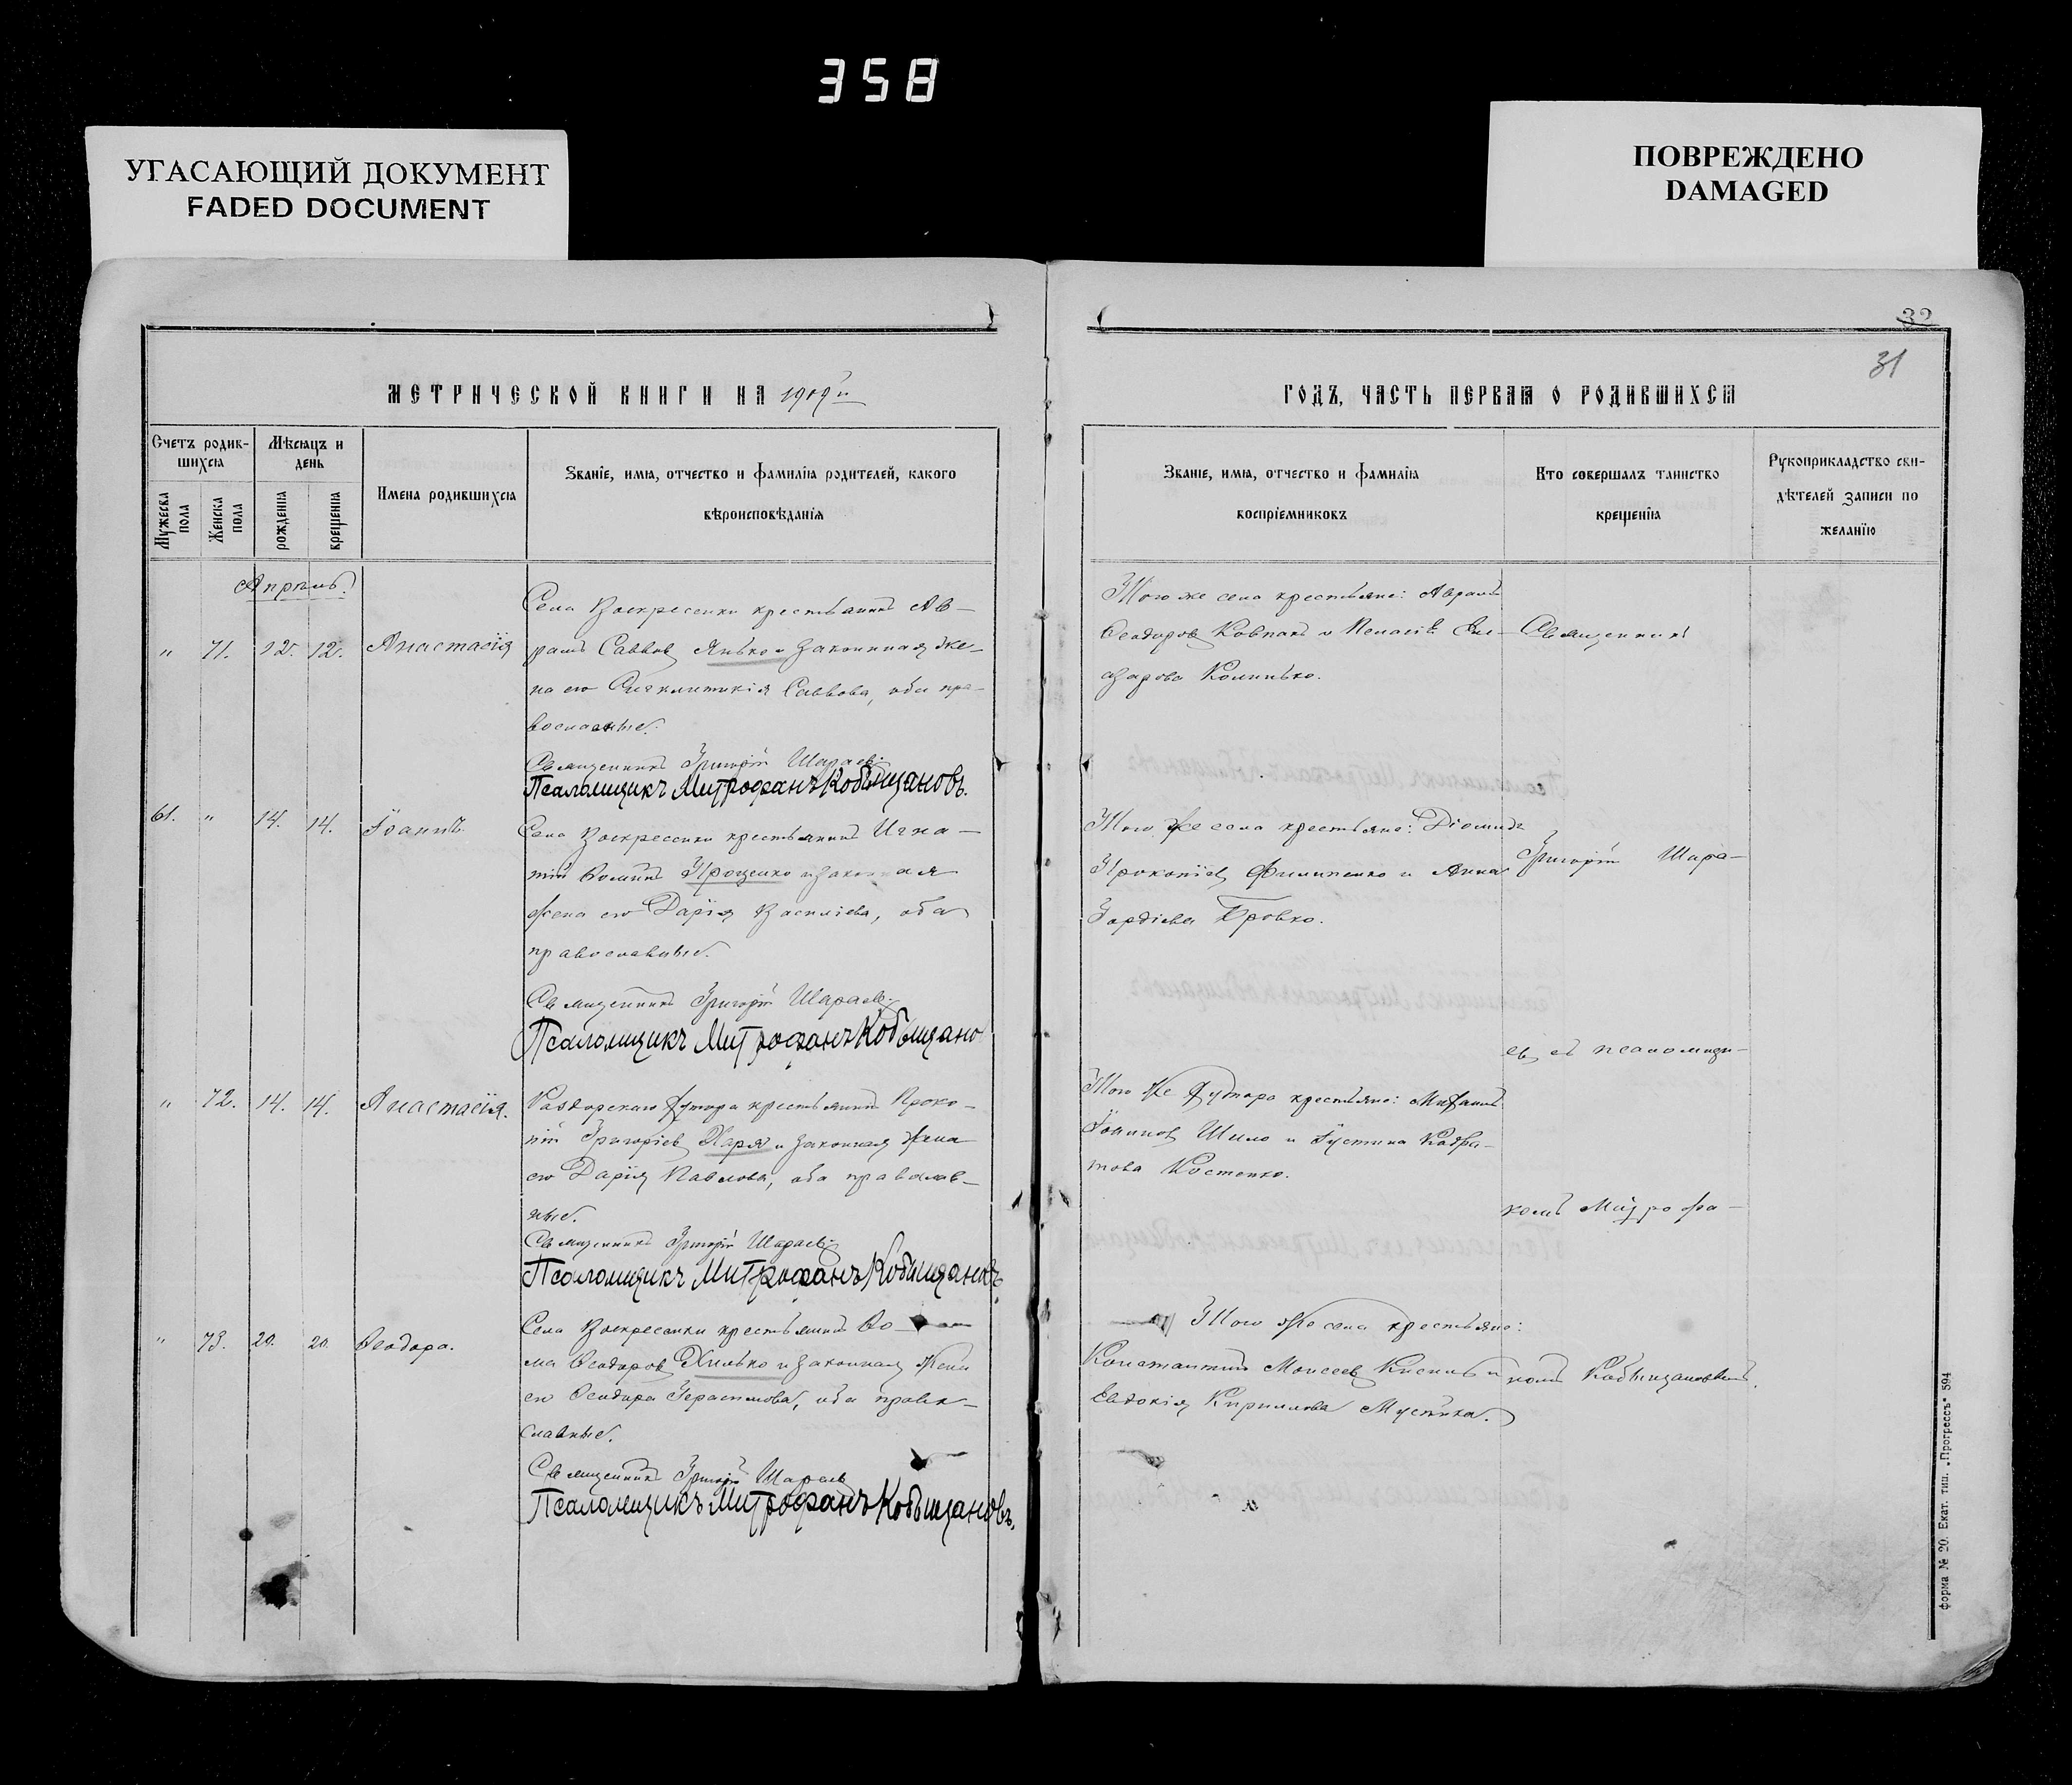 358
УГАСАЮЩИЙ ДОКУМЕНТ
FADED DOCUMENT
ПОВРЕЖДЕНО
DAMAGED
32
31
МЕТРИЧЕСКОЙ КНИГИ НА 1909й
ГОДЪ, ЧАСТЬ ПЕРВАЯ О РОДИВШИХСЯ
Счетъ родив-
шихся
Мужеска пола
Женска пола
Мѣсяцъ и
день
рожденія
крещенія
Имена родившихся
Званіе, имя, отчество и фамилія родителей, какого
вѣроисповѣданія
Званіе, имя, отчество и фамилія
воспріемниковъ
Кто совершалъ таинство
крещенія
Рукоприкладство сви-
дѣтелей записи по
желанію
Апрѣль.
" 71. 12. 12. Анастасія
Села Воскресенки крестьянинъ Ав-
рамъ Саввовъ Янько и законная же-
на его Синклитикія Саввова, оба пра-
вославные.
Священникъ Григорій Шараевъ
Псаломщикъ Митрофанъ Кобыщановъ.
Того же села крестьяне: Авраамъ
Ѳеодоровъ Ковпакъ и Пелагія Еле-
азарова
Священникъ
61. " 14. 14. Іоаннъ.
Села Воскресенки крестьянинъ Игна-
тій Ѳоминъ Проценко и законная
жена его Дарія Василіева, оба
православные.
Священникъ Григорій Шараевъ
Псаломщикъ Митрофанъ Кобыщано
Того же села крестьяне: Діомидъ
Прокопіевъ Филипенко и Анна
Гордіева Бровко.
Григорій Шара-
евъ съ псаломщи-
" 72. 14. 14. Анастасія.
Раздорскаго хутора крестьянинъ Проко-
пій Григоріевъ Харя и законная жена
его Дарія Павлова, оба православ-
ные.
Священникъ Григорій Шараевъ
Псаломщикъ Митрофанъ Кобыщановъ
Того же хутора крестьяне: Михаилъ
Іоанновъ Шило и Іустина Кодра-
това Костенко.
комъ Митрофа-
" 73. 20. 20. Ѳеодора.
Села Воскресенки крестьянинъ Ѳо-
ма Ѳеодоровъ Хилько и законная жена
его Ѳеодора Герасимова, оба право-
славные.
Священникъ Григорій Шараевъ
Псаломщикъ Митрофанъ Кобыщановъ.
Того же села крестьяне:
Константинъ Моисеевъ и
Евдокія Кириллова
номъ Кобыщановымъ.
Форма № 20. Екат. тип. „Прогрессъ" 594